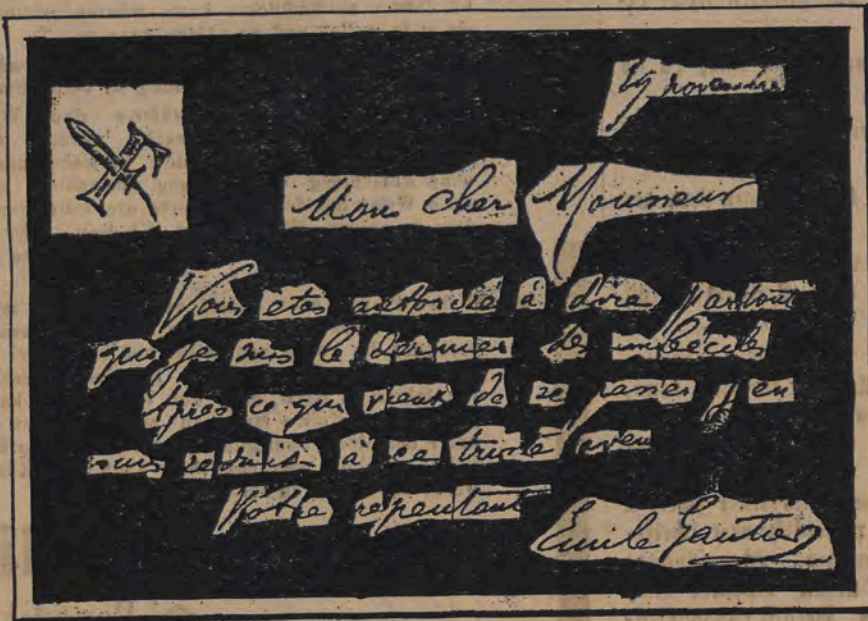 novembre
Mon cher Monsieur
Vous etes autorisé à dire partout
que je suis le dernier des imbéciles
Après ce qui vient de se passer j'en
suis réduit à ce triste aveu
Votre repentant
Emile Gautier